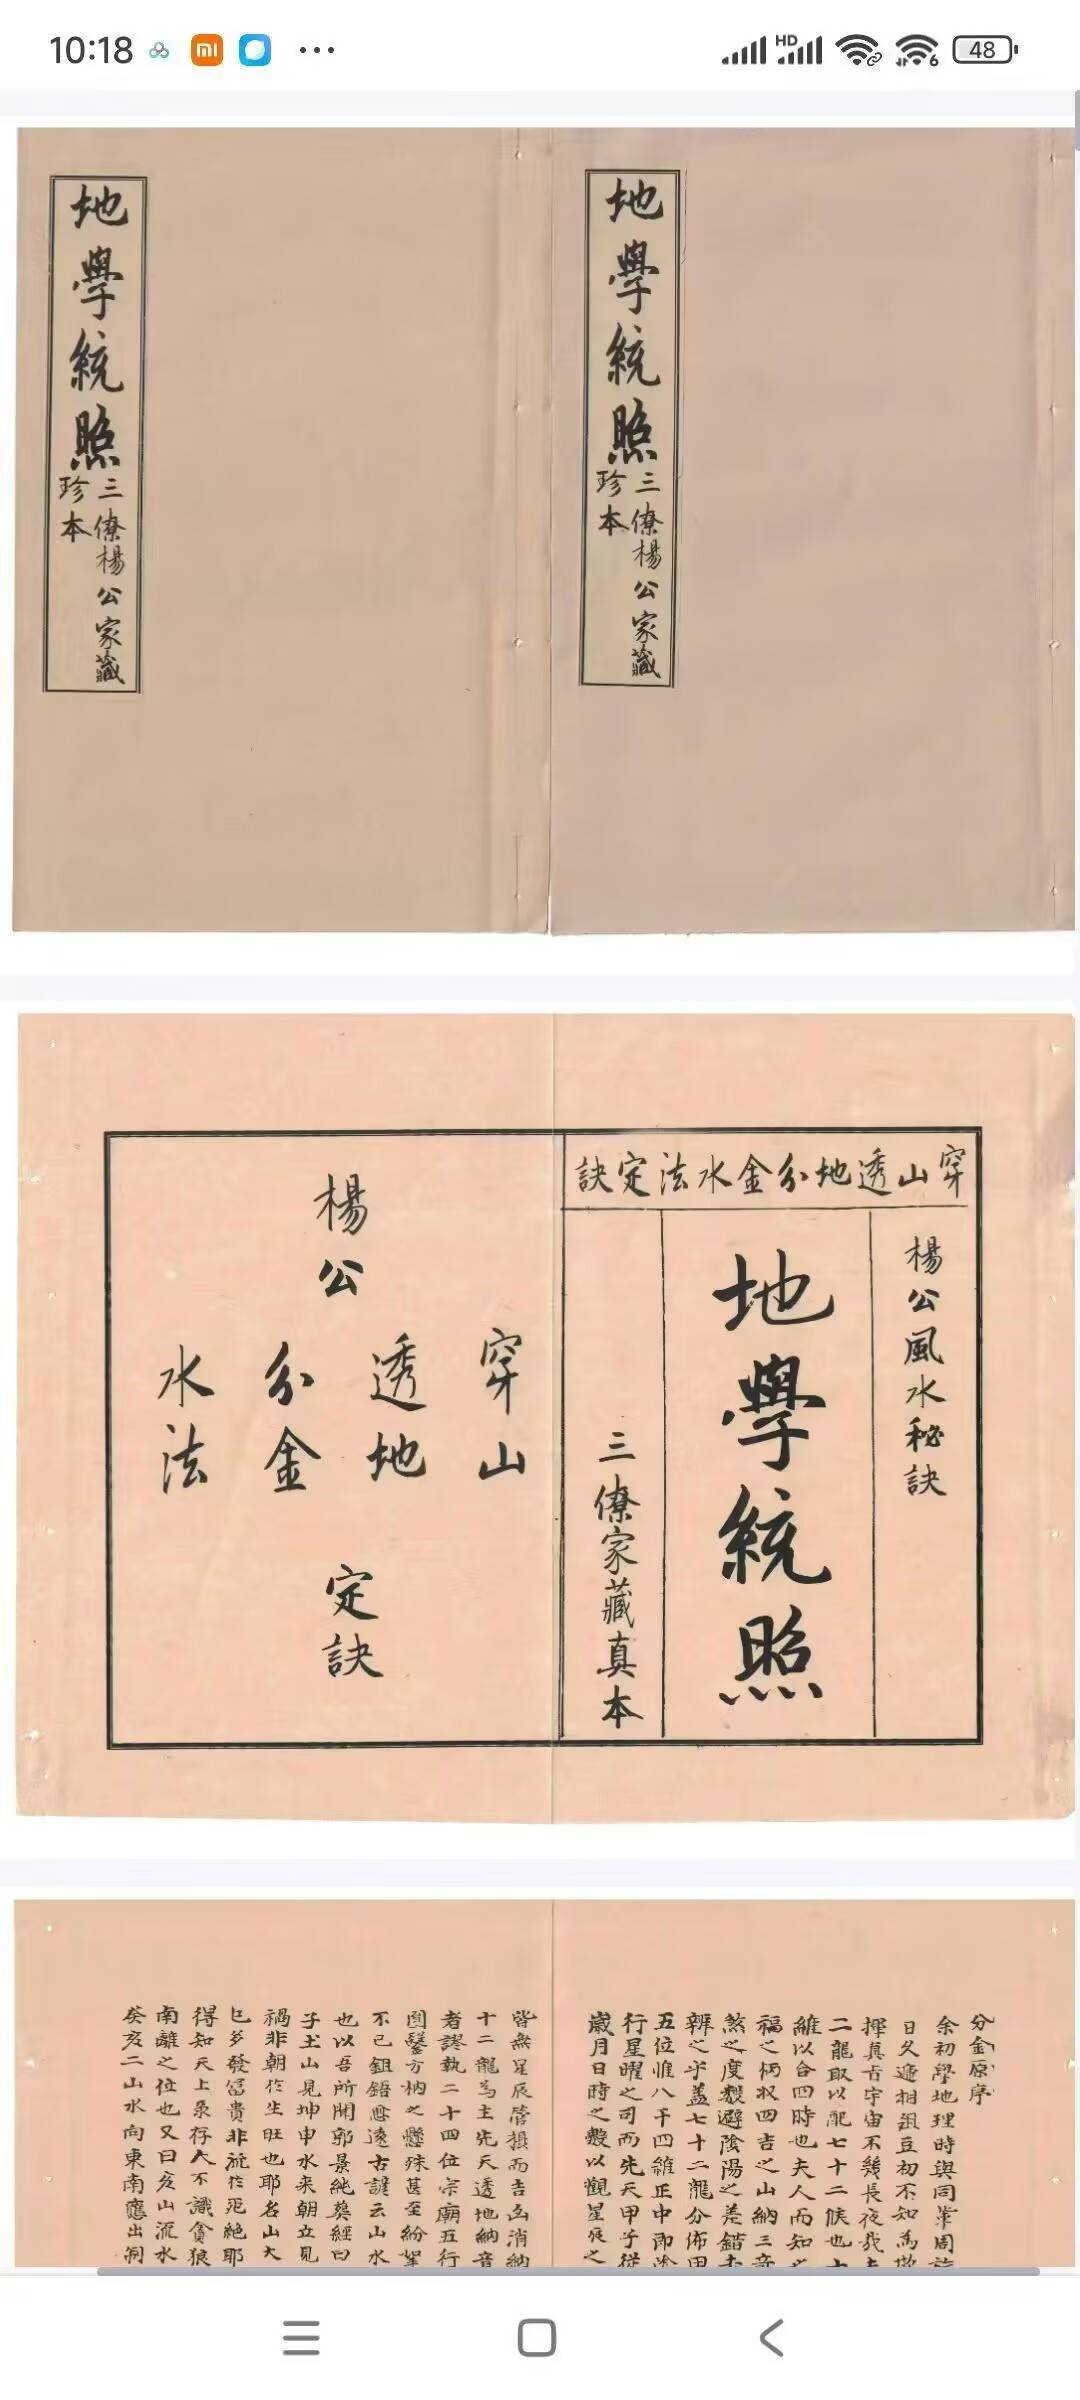 10:18
HD
6
48
地學統照
三僚楊公家藏
珍本
地學統照
三僚楊公家藏
珍本
穿山透地分金水法定訣
楊公風水秘訣
地學統照
三僚家藏真本
楊公
穿山
透地
分金
水法
定訣
分金原序
余初學地理時與同輩周
日久遞相詛豆初不知為
揮真古宇宙不幾長夜哉
二龍取以配七十二候也
維以合四時也夫人而知之
福之柄收四吉之山納三奇
煞之度數避陰陽之差錯
辨之乎蓋七十二龍分佈
五位惟八干四維正中即
行星曜之司而先天甲子從
歲月日時之數以觀星辰之
皆無星辰管攝而吉凶消納
十二龍為主先天透地納音
者謬執二十四位宗廟五行
圓鑿方枘之懸殊甚至紛挐
不已鉏鋙愈遠古諺云山水
也以吾所聞郭景純葬經曰
子土山見坤申水來朝立見
禍非朝於生旺也耶名山大
巳多發富貴非流於死絕耶
得知天上象存人不識貪狼
南離之位也又曰亥山流水
癸亥二山水向東南應出詞